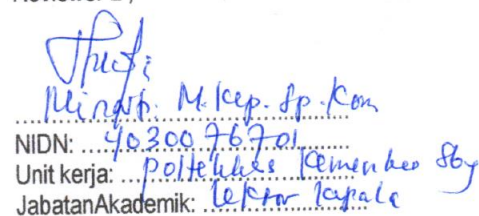 M.Kep. Sp.Kom
NIDN: 4030076701
Unit kerja: poltekkes kemenkes Sby
JabatanAkademik: Lektor Kepala